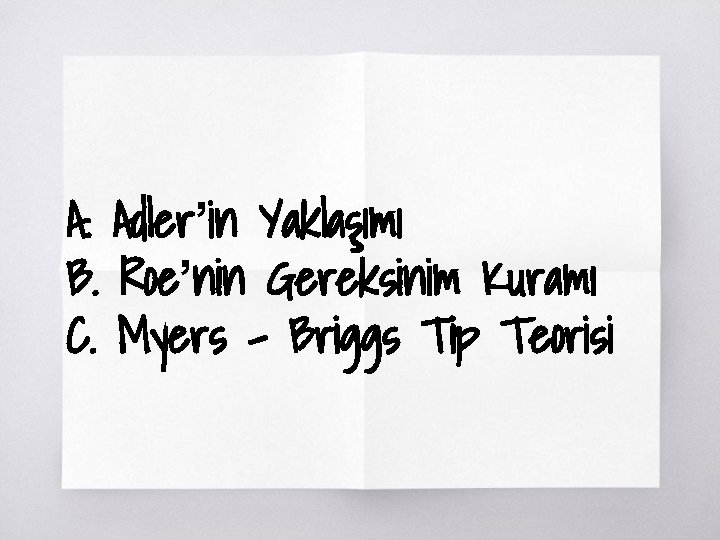 A. Adler’in Yaklaşımı
B. Roe’nin Gereksinim Kuramı
C. Myers - Briggs Tip Teorisi